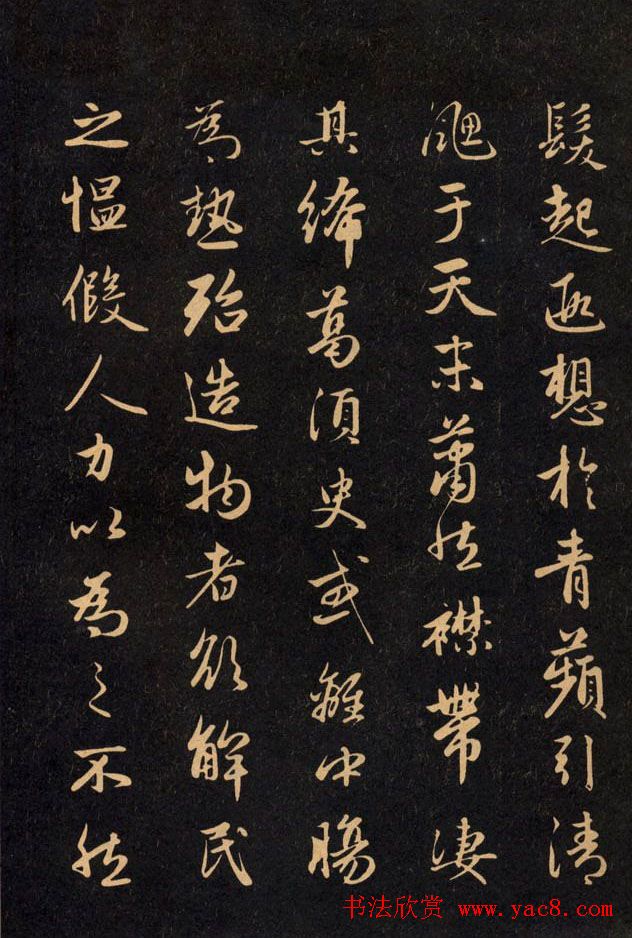 髮起遐想於青蘋引清
飔于天末蕭然襟帶淒
其絺葛須臾或離中腸
為熱殆造物者欲解民
之愠假人力以為之不然
书法欣赏 www.yac8.com